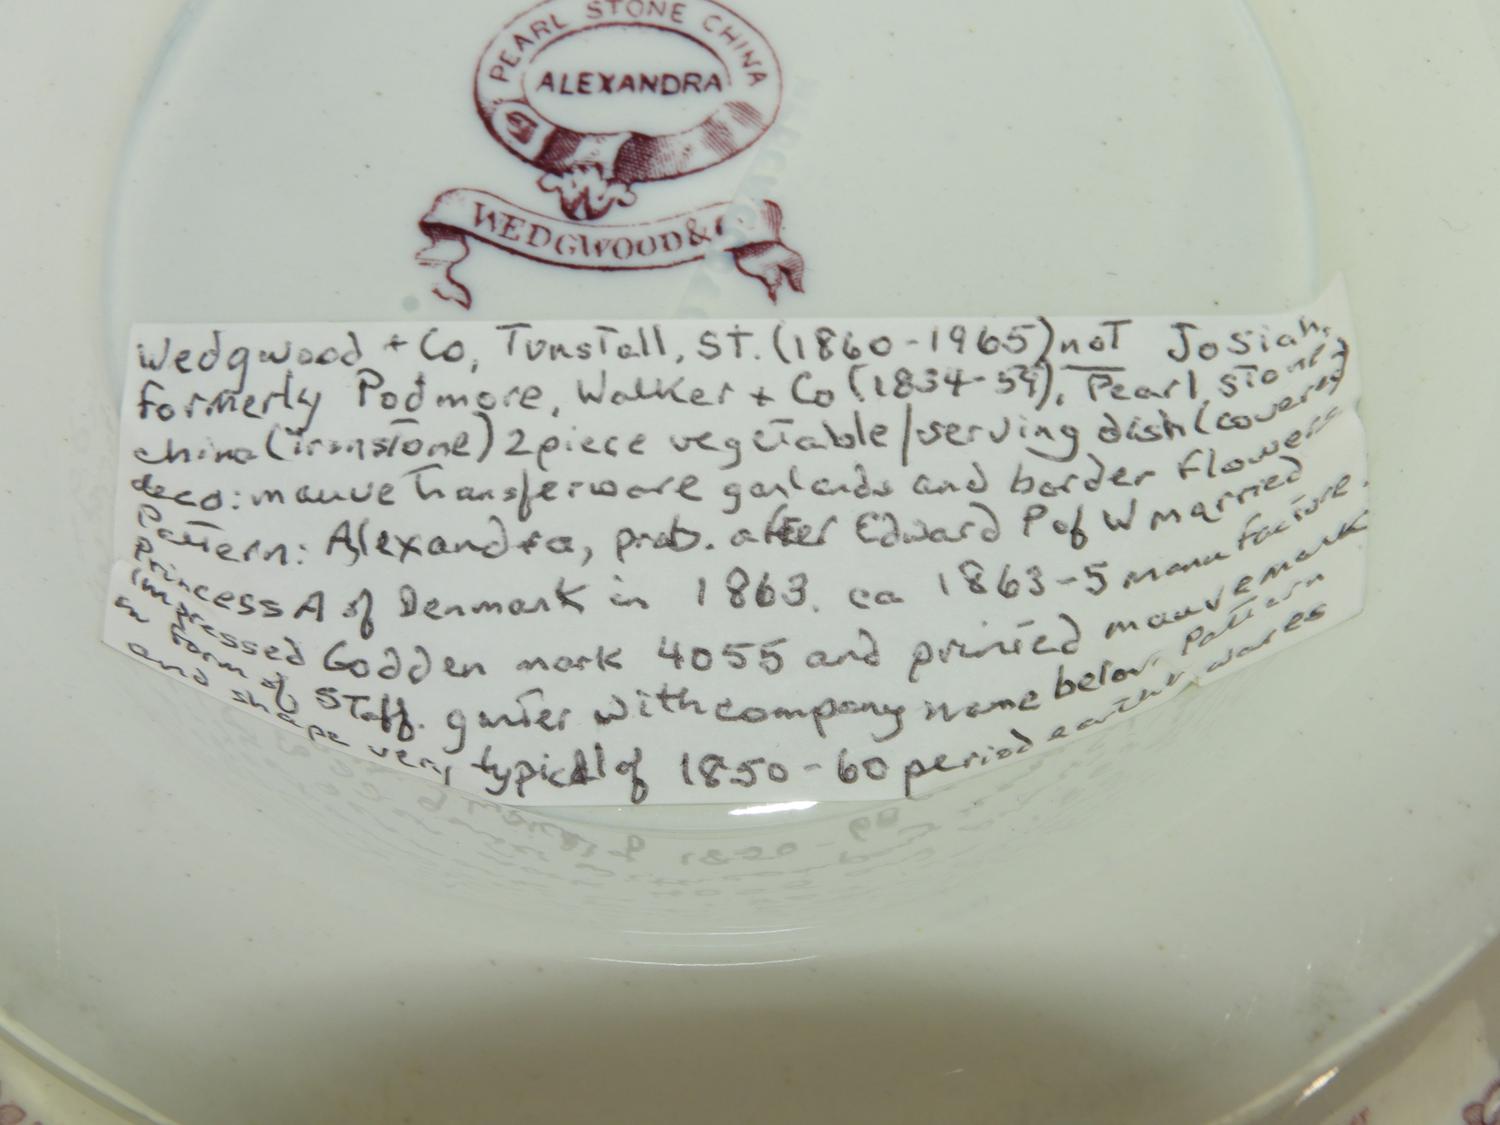 PEARL STONE CHINA
ALEXANDRA
WEDGWOOD &
Wedgwood + Co, Tunstall, ST. (1860-1965) not Josiah,
formerly Podmore, Walker + Co (1834-59), Pearl stone
china (ironstone) 2 piece vegetable/serving dish (covered)
deco: mauve Transferware garlands and border flowers
Pattern: Alexandra, prob. after Edward P of W married
Princess A of Denmark in 1863. ca 1863-5 manufacture.
impressed Godden mark 4055 and printed mauve mark
in form of Staff. garter with company name below. Pattern
and shape very typical of 1850-60 period earthenwares